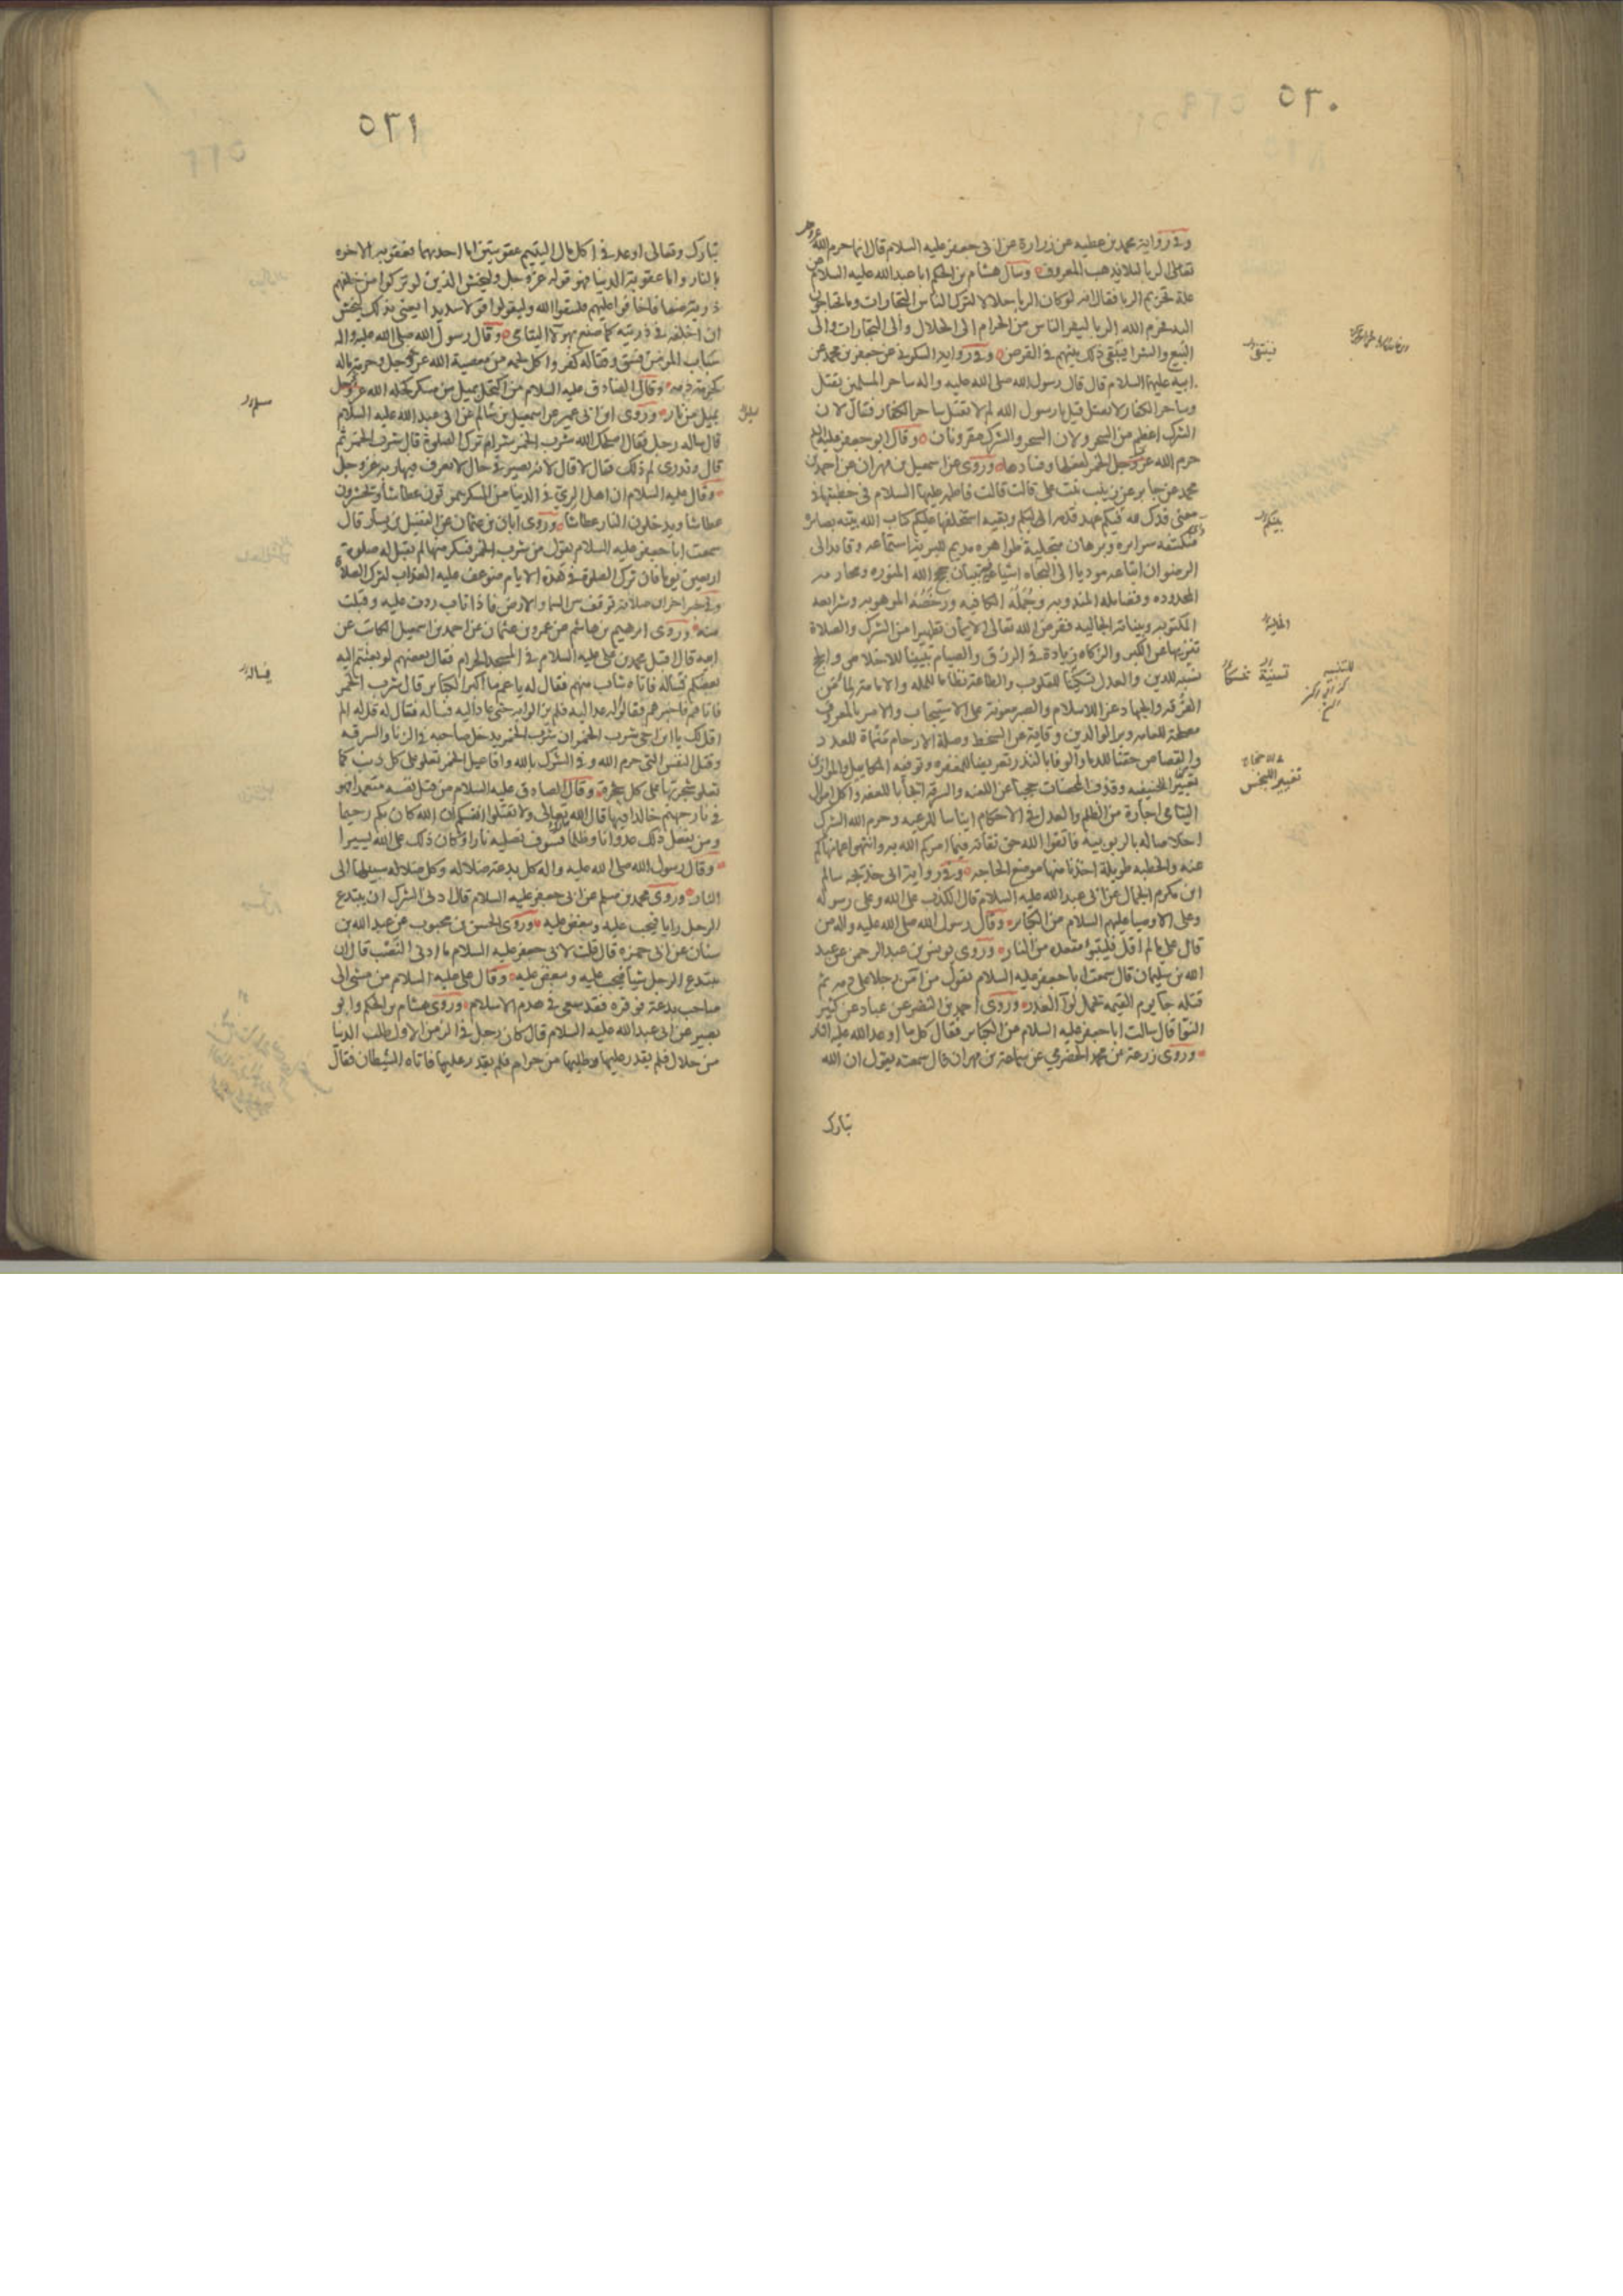 ٥٣٠
وفي رواية محمد بن عطيه عن زرارة عن ابى جعفر عليه السلام قال انما حرم الله عزوجل
تعالى الربا لئلا يذهب المعروف وسأل هشام بن الحكم ابا عبد الله عليه السلام عن
علة تحريم الربا فقال انه لو كان الربا حلالا لترك الناس التجارات وما يحتاجون
اليه فحرم الله الربا ليفر الناس من الحرام الى الحلال والى التجارات والى
البيع والشرا فيبقى ذلك بينهم في القرض وفي رواية السكوني عن جعفر بن محمد عن
ابيه عليهما السلام قال قال رسول الله صلى الله عليه واله ساحر المسلمين يقتل
وساحر الكفار لا يقتل قيل يا رسول الله لم لا تقتل ساحر الكفار فقال لان
الشرك اعظم من السحر ولان السحر والشرك مقرونان وقال ابو جعفر عليه السلم
حرم الله عز وجل الخمر لفعلها وفسادها وروى عن اسمعيل بن مهران عن احمد بن
محمد عن جابر عن زينب بنت على قالت قالت فاطمه عليها السلام في خطبتها في
معنى فدك لله فيكم عهد قدمه اليكم وبقيه استخلفها عليكم كتاب الله بينه بصائره
منكشفه سرائره وبرهان متجلية ظواهره مديم للبرية استماعه وقايد الى
الرضوان اتباعه موديا الى النجاه اشياعه فيه تبيان حجج الله المنوره ومحارمه
المحدوده وفضائله المندوبه وجمله الكافيه ورخصه الموهوبه وشرايعه
المكتوبه وبيناته الجاليه ففرض الله تعالى الايمان تطهيرا من الشرك والصلاة
تنزيها عن الكبر والزكاه زيادة في الرزق والصيام تبيينا للاخلاص والحج
تسنيه للدين والعدل تسكينا للقلوب والطاعة نظاما للمله والامامة لما من
الفرقه والجهاد عزا للاسلام والصبر معونة على الاستيجاب والامر بالمعروف
مصلحة للعامه وبر الوالدين وقاية عن السخط وصلة الارحام منماة للعدد
والقصاص حقنا للدماء والوفا بالنذر تعريضا للمغفره وتوفيه المكاييل والموازين
تغييرا للحنيفيه وقذف المحصنات حجبا عن اللعنه والسرقه ايجابا للعفه واكل اموال
اليتامى اجارة من الظلم والعدل في الاحكام ايناسا للرعيه وحرم الله الشرك
اخلاصا له بالربوبيه فاتقوا الله حق تقاته فيما امركم الله به وانتهوا عما نهاكم
عنه والخطبه طويلة اخذنا منها موضع الحاجه وفي رواية ابى خديجه سالم
ابن مكرم الجمال عن ابى عبد الله عليه السلام قال الكذب على الله وعلى رسوله
وعلى الاوصياء عليهم السلام من الكباير وقال رسول الله صلى الله عليه واله من
قال على ما لم اقل فليتبوأ مقعده من النار وروى يونس بن عبد الرحمن عن عبد
الله بن سليمان قال سمعت ابا جعفر عليه السلام يقول من آمن رجلا على دمه ثم
قتله جا يوم القيمه يحمل لوآ الغدر وروى احمد بن النضر عن عباد عن كثير
النوا قال سالت ابا جعفر عليه السلام من الكباير فقال كل ما اوعد الله عليه النار
وروى زرعة عن محمد الحضرمي عن سماعة بن مهران قال سمعته يقول ان الله
تبارك
فيبقى
بينكم
الجليه
تسنية
تغيير البخس
٥٣١
تبارك وتعالى اوعد في اكل مال اليتيم عقوبتين اما احديهما فعقوبه الاخره
بالنار واما عقوبة الدنيا فهو قوله عز وجل وليخش الذين لو تركوا من خلفهم
ذرية ضعافا خافوا عليهم فليتقوا الله وليقولوا قولا سديدا يعنى بذلك ليخش
ان اخلفه في ذريته كما صنع بهولآ اليتامى وقال رسول الله صلى الله عليه واله
سباب المومن فسق وقتاله كفر واكل لحمه من معصية الله عز وجل وحرمة ماله
كحرمة دمه وقال الصادق عليه السلام من اكتحل بميل من مسكر كحله الله عز وجل
بميل من نار وروى ابن ابى عمير عن اسمعيل بن سالم عن ابى عبد الله عليه السلام
قال ساله رجل فقال اصلحك الله شرب الخمر شر ام ترك الصلوة قال شرب الخمر ثم
قال وتدرى لم ذلك فقال لا قال لانه يصير في حال لا يعرف فيها ربه عز وجل
وقال عليه السلام ان اهل الرى في الدنيا من المسكر يموتون عطاشا ويحشرون
عطاشا ويدخلون النار عطاشا وروى ابان بن عثمان عن الفضيل بن يسار قال
سمعت ابا جعفر عليه السلام يقول من شرب الخمر فسكر منها لم يقبل له صلوة
اربعين يوما فان ترك الصلوة في هذه الايام ضوعف عليه العذاب لترك الصلاة
وفي خبر اخر ان صلاته توقف بين السما والارض فاذا تاب ردت عليه وقبلت
منه وروى ابرهيم بن هاشم عن عمرو بن عثمان عن احمد بن اسمعيل الكاتب عن
ابيه قال اقبل محمد بن على عليه السلام في المسجد الحرام فقال بعضهم لو بعثتم اليه
بعضكم فساله فاتاه شاب منهم فقال له يا عم ما اكبر الكباير قال شرب الخمر
فاتاهم فاخبرهم فقالوا له عد اليه فلم يزالوا به حتى عاد اليه فساله فقال له الم
اقل لك يا ابن اخي شرب الخمر ان شرب الخمر يدخل صاحبه في الزنا والسرقه
وقتل النفس التى حرم الله وفي الشرك بالله وافاعيل الخمر تعلو على كل ذنب كما
تعلو شجرتها على كل شجرة وقال الصادق عليه السلام من قتل نفسه متعمدا فهو
في نار جهنم خالدا فيها قال الله تعالى ولا تقتلوا انفسكم ان الله كان بكم رحيما
ومن يفعل ذلك عدوانا وظلما فسوف نصليه نارا وكان ذلك على الله يسيرا
وقال رسول الله صلى الله عليه واله كل بدعة ضلاله وكل ضلاله سبيلها الى
النار وروى محمد بن مسلم عن ابى جعفر عليه السلام قال ادنى الشرك ان يبتدع
الرجل رايا فيحب عليه ويبغض عليه وروى الحسن بن محبوب عن عبد الله بن
سنان عن ابى حمزه قال قلت لابى جعفر عليه السلام ما ادنى النصب قال ان
يبتدع الرجل شيأ فيحب عليه ويبغض عليه وقال على عليه السلام من مشى الى
صاحب بدعة فوقره فقد سعى في هدم الاسلام وروى هشام بن الحكم وابو
بصير عن ابى عبد الله عليه السلام قال كان رجل في الزمن الاول طلب الدنيا
من حلال فلم يقدر عليها وطلبها من حرام فلم يقدر عليها فاتاه الشيطان فقال
فساله